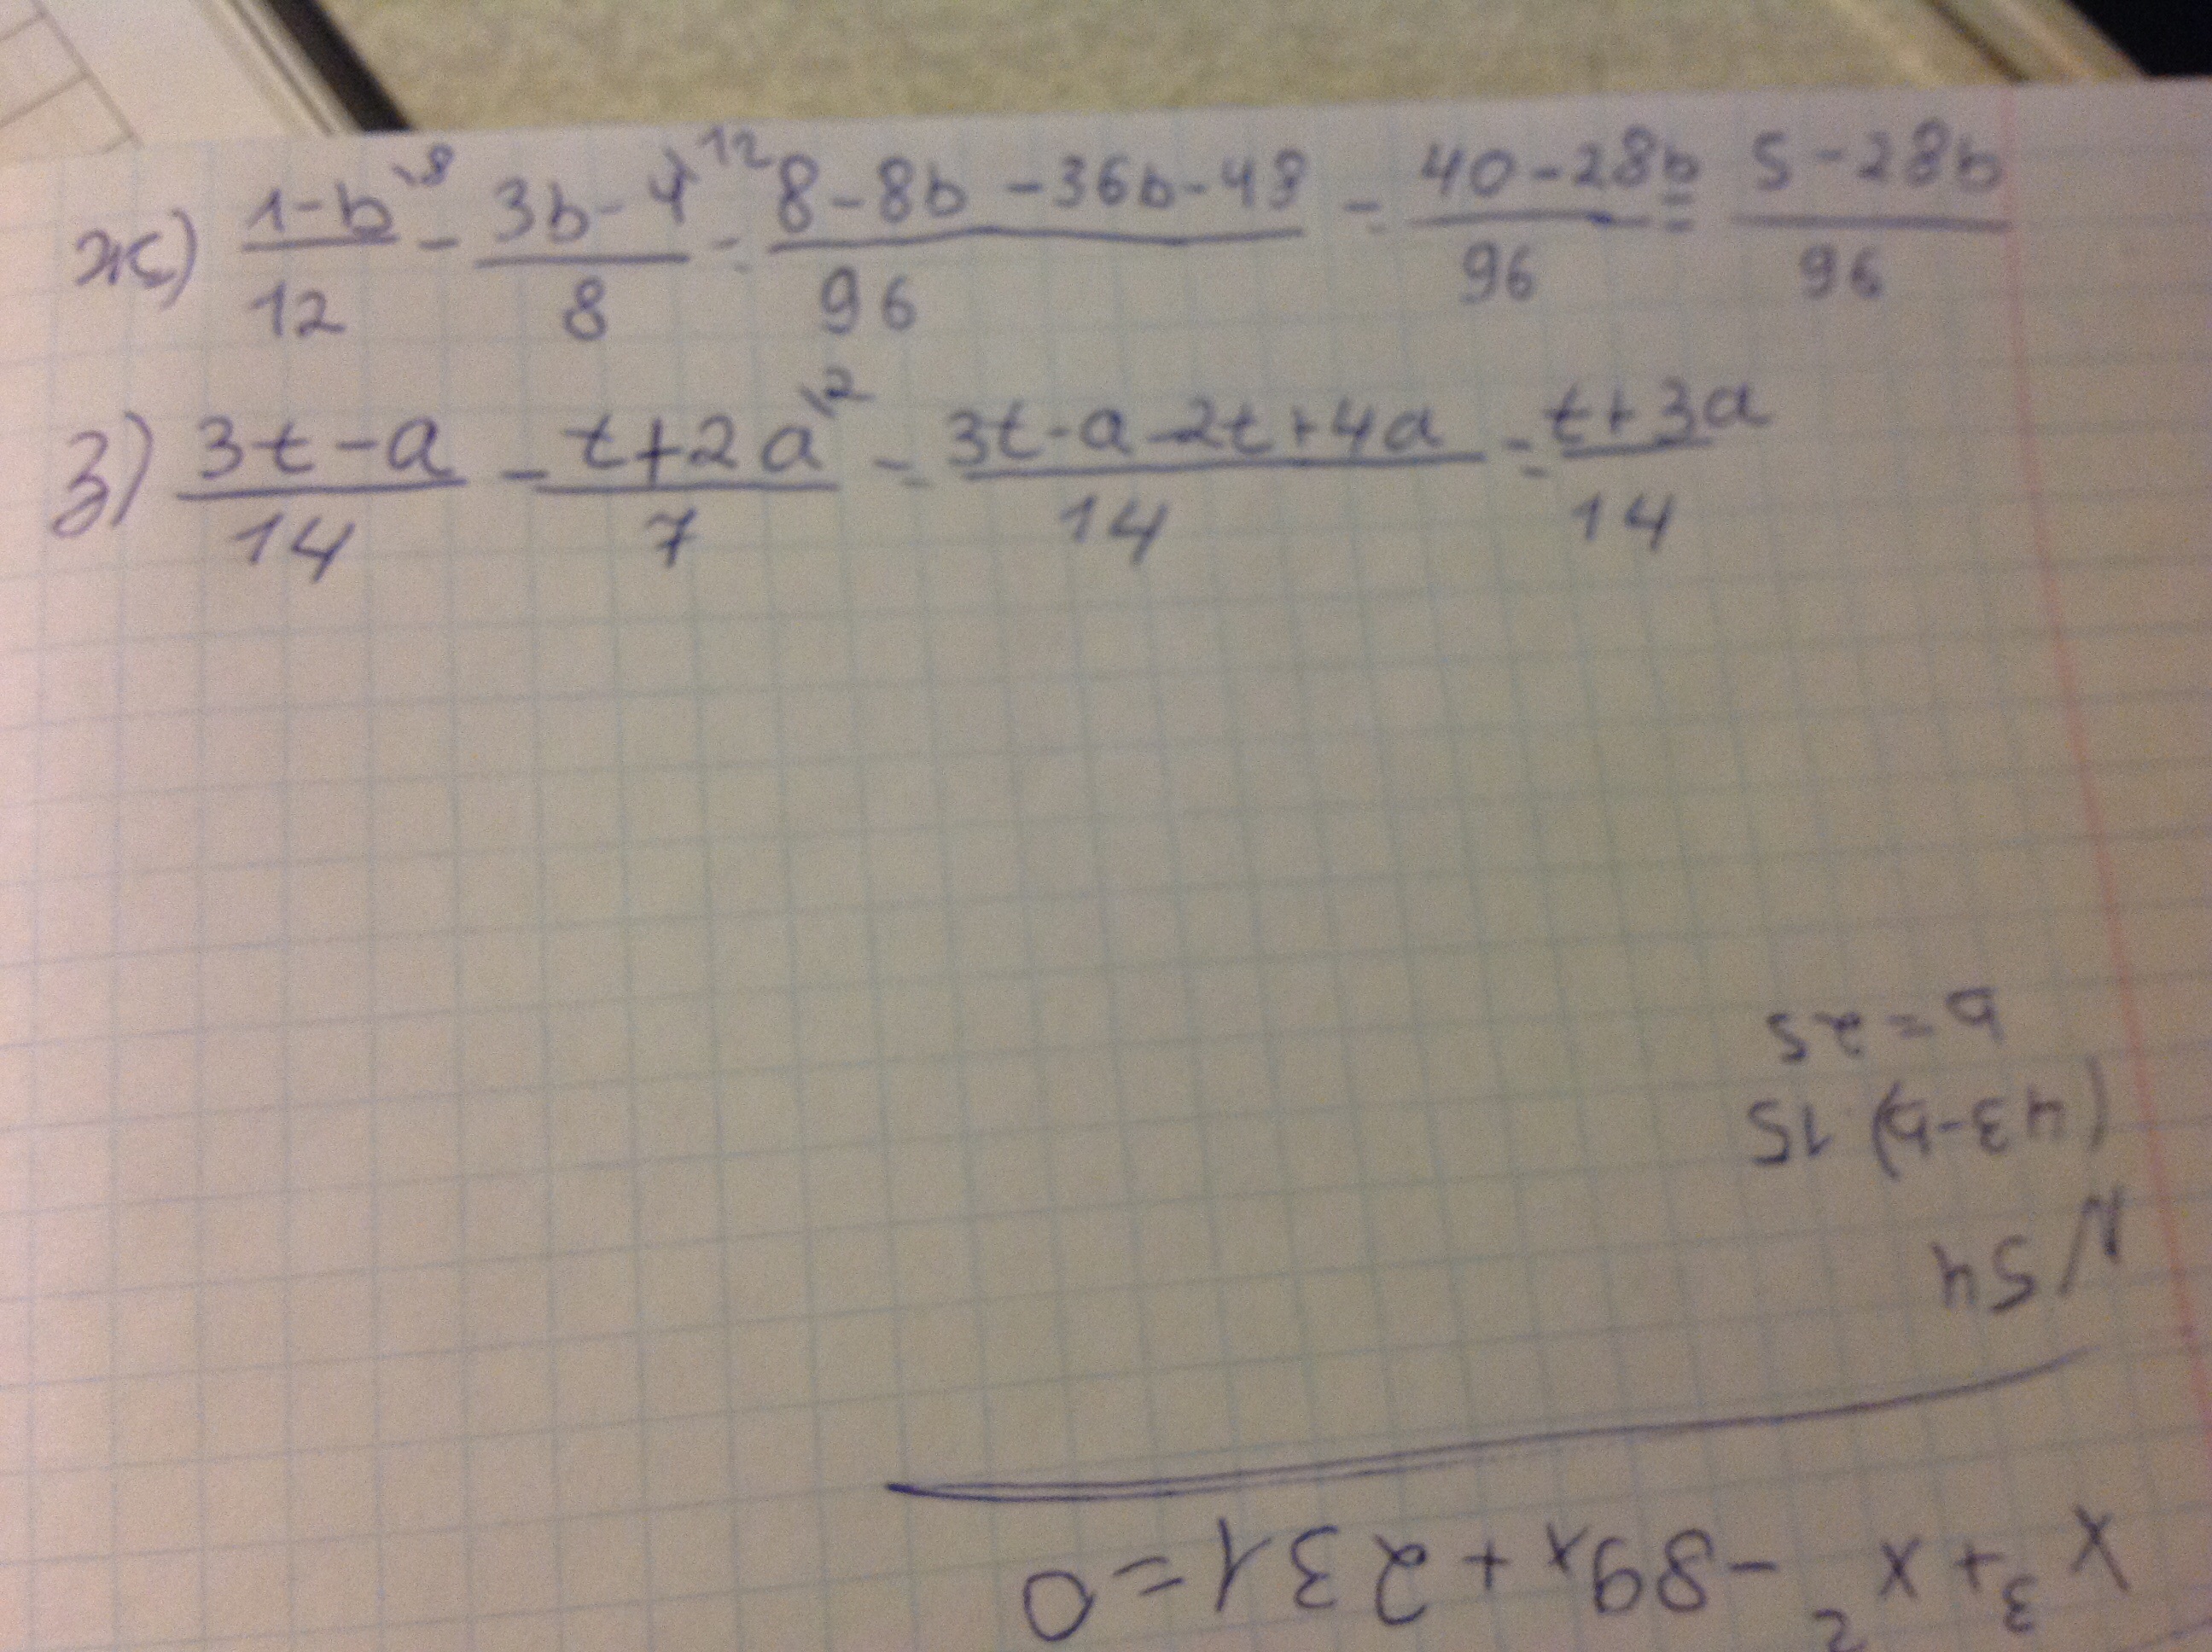 ж) 1-b\8/12 - 3b-4\12/8 = 8-8b-36b-48/96 = 40-28b/96 = 5-28b/96
з) 3t-a/14 - t+2a\2/7 = 3t-a-2t+4a/14 = t+3a/14
x³+x²-89x+231=0
N54
(43-b) 15
b=25